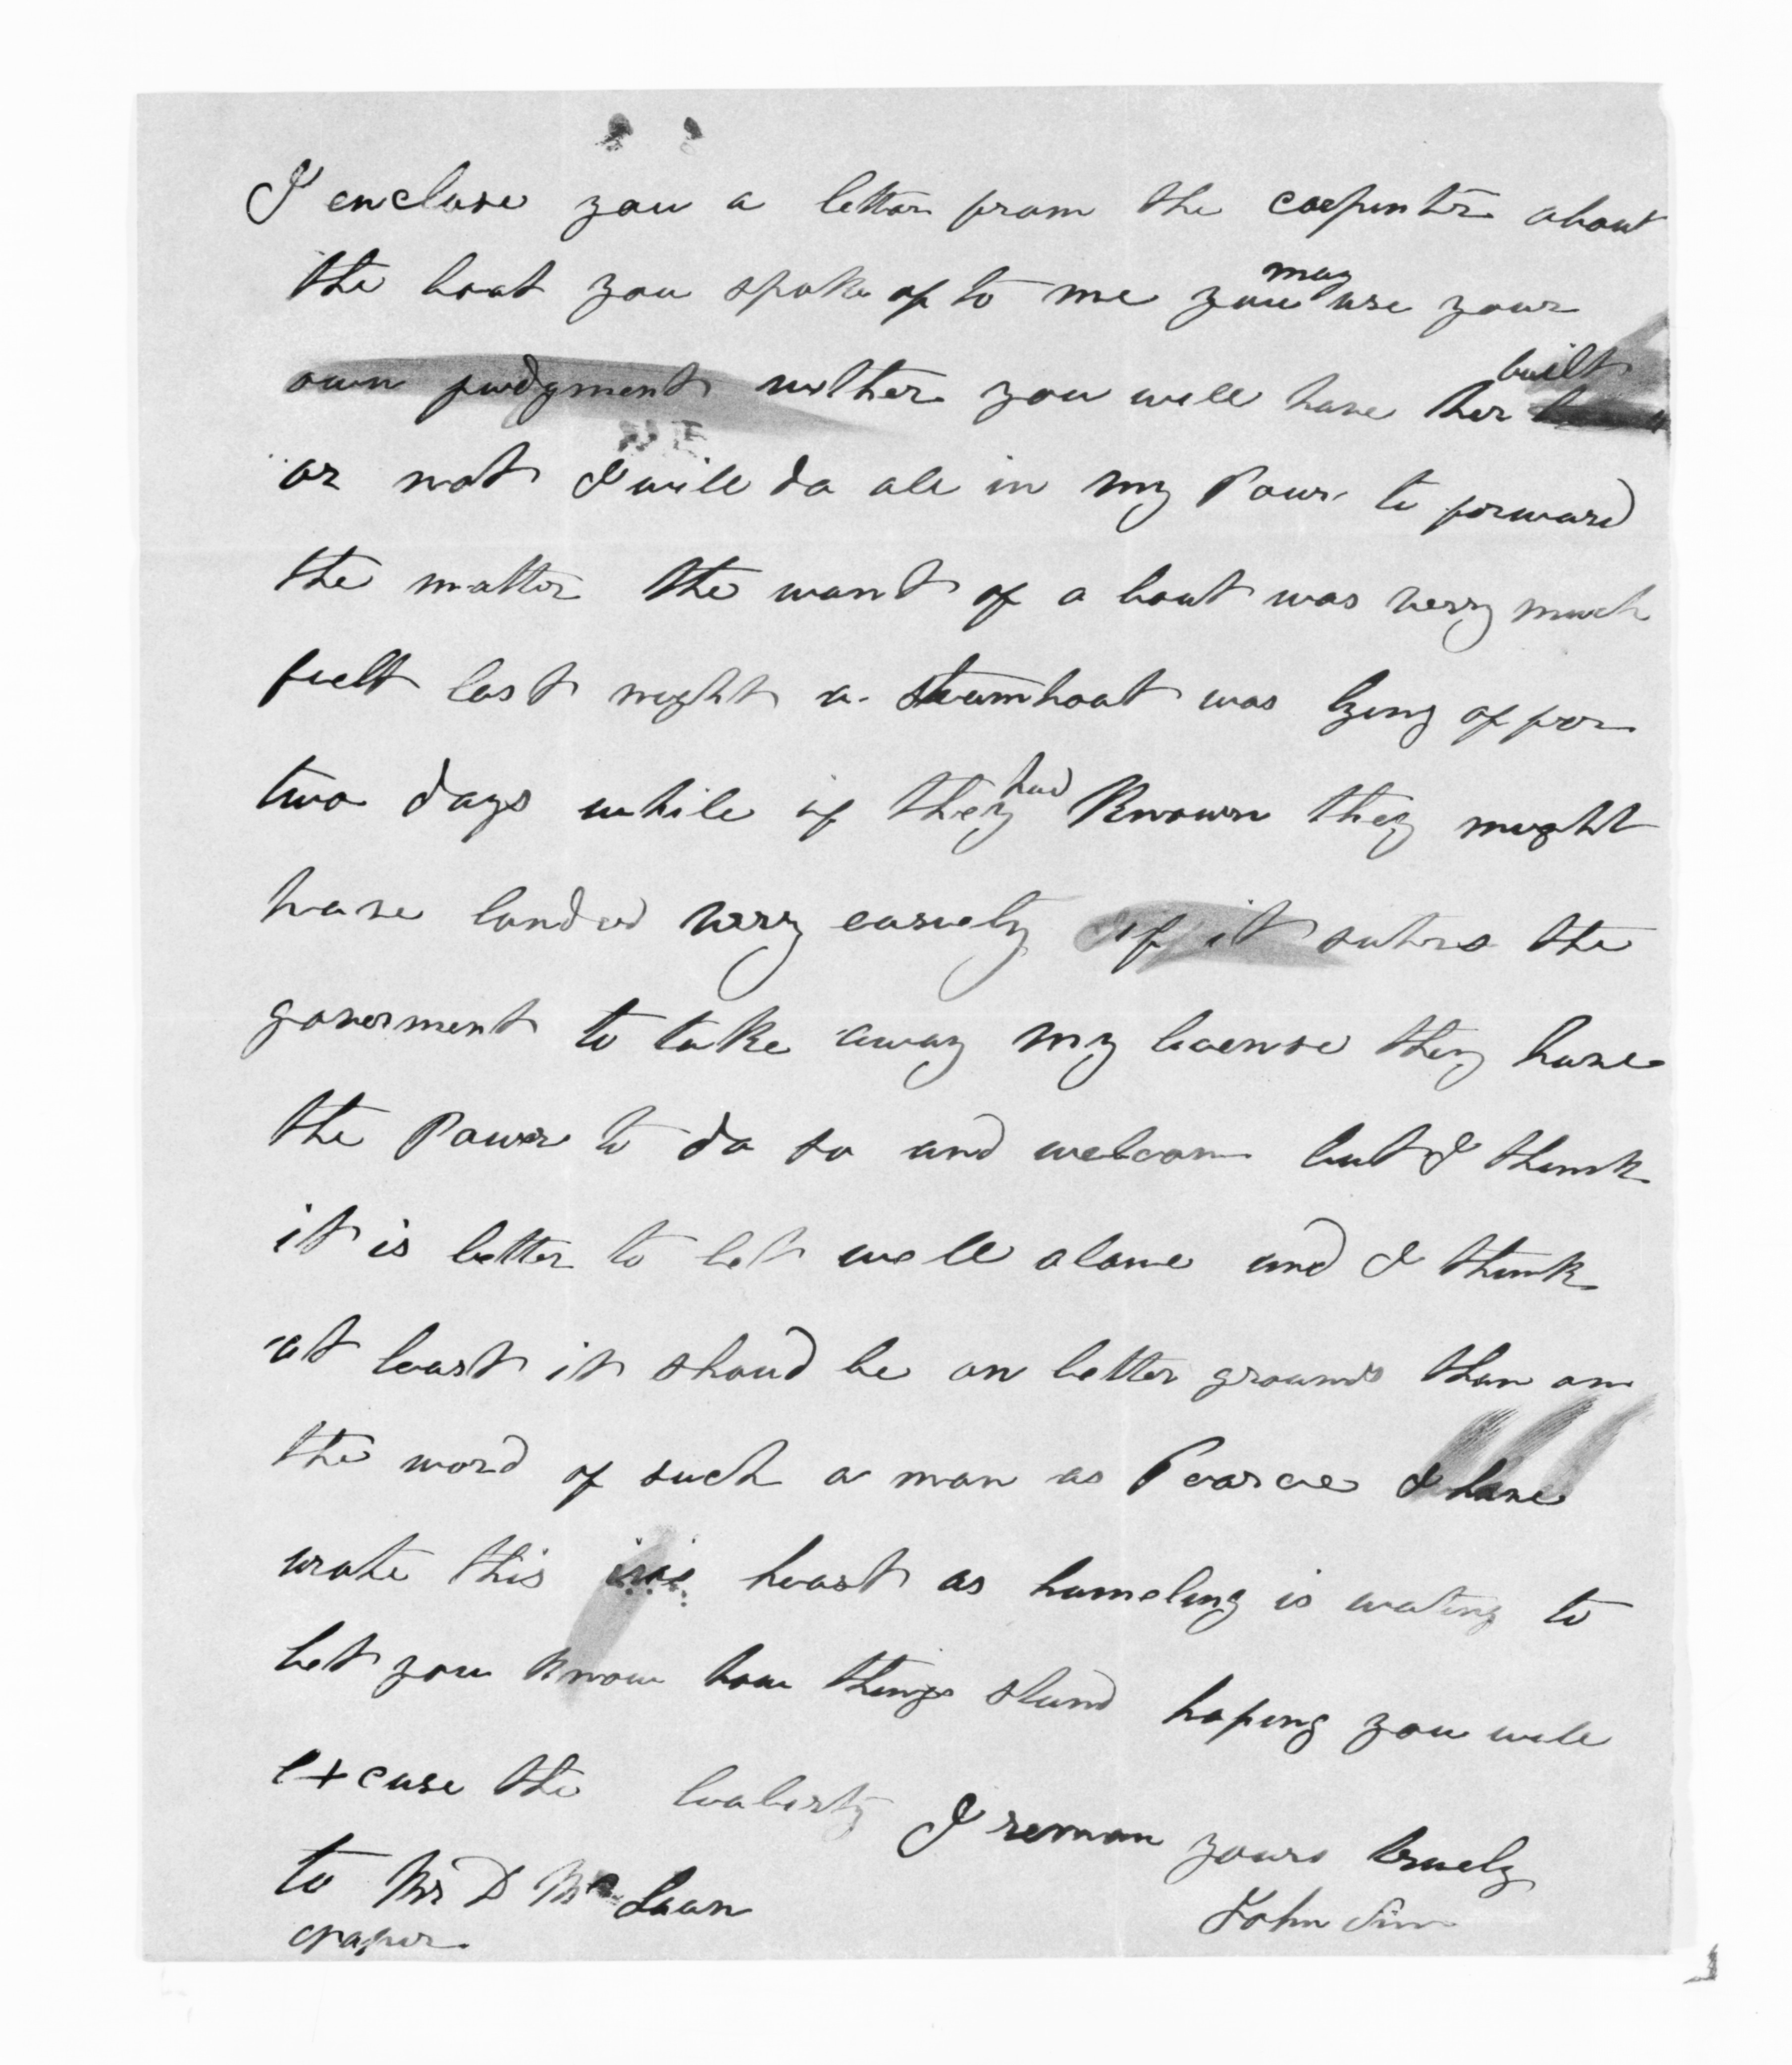 I enclose you a letter from the carpenter about
the boat you spoke of to me you may use your
own judgment wether you will have her built
or not I will do all in my Power to forward
the matter the want of a boat was very much
fielt last night a steamboat was lying of for
two days while if they had Known they might
have landed very easiely if it suters the
goverment to take away my license they have
the Power to do so and welcom but I think
it is better to let well alone and I think
at least it shoud be on better grounds than on
the word of such a man as Pearce I have
wrote this in heast as homeling is wating to
let you know how things stand hoping you will
excuse the leaberty I reman yours truely
to Mr D McLean John Sim
Napier